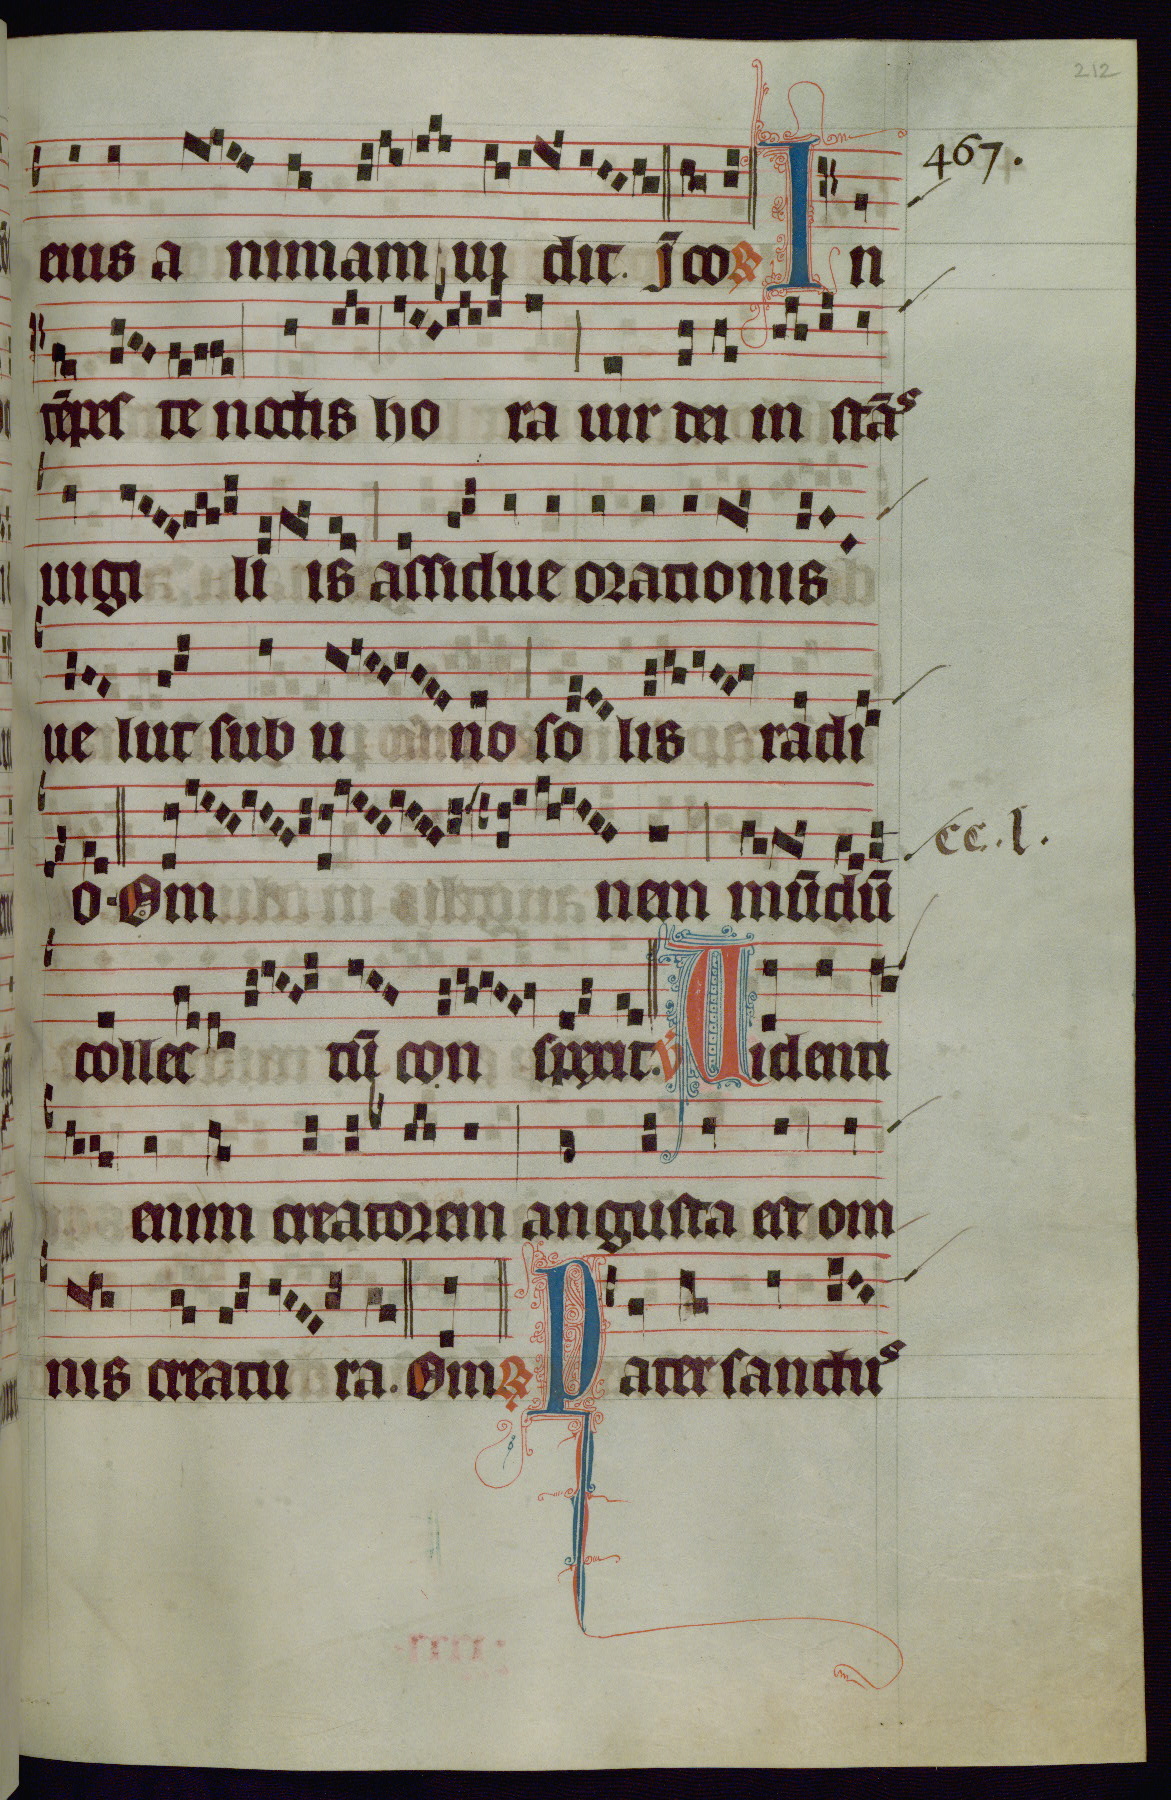 212
467.
eius a nimam ui dit. j̄ co ℟ In
tēpes te noctis ho ra uir dei in stāˢ
uigi li is assidue orationis
ue lut sub u no so lis radi
o. Om nem mūdū
cc.l.
collec tū con spexit. ℣ Uidenti
enim creatorem angusta est om
nis creatu ra. Om ℟ Pater sanctuˢ